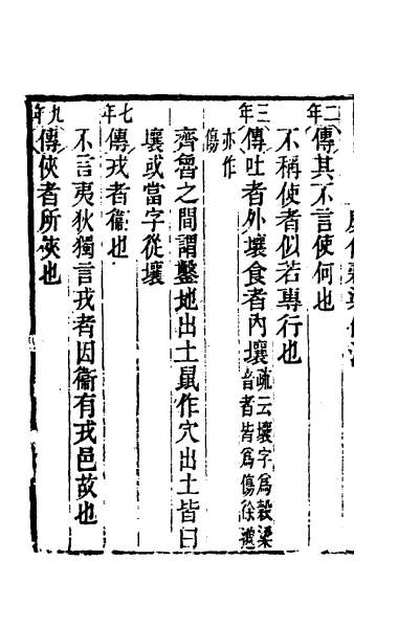 二年
傳其不言使何也
不稱使者似若專行也
三年
傳吐者外壤食者內壤疏云壤字爲穀梁
音者皆爲傷徐邈
亦作
傷
齊魯之間謂鑿地出土鼠作穴出土皆曰
壤或當字從壤
七年
傳戎者衞也
不言夷狄獨言戎者因衞有戎邑故也
九年
傳俠者所俠也